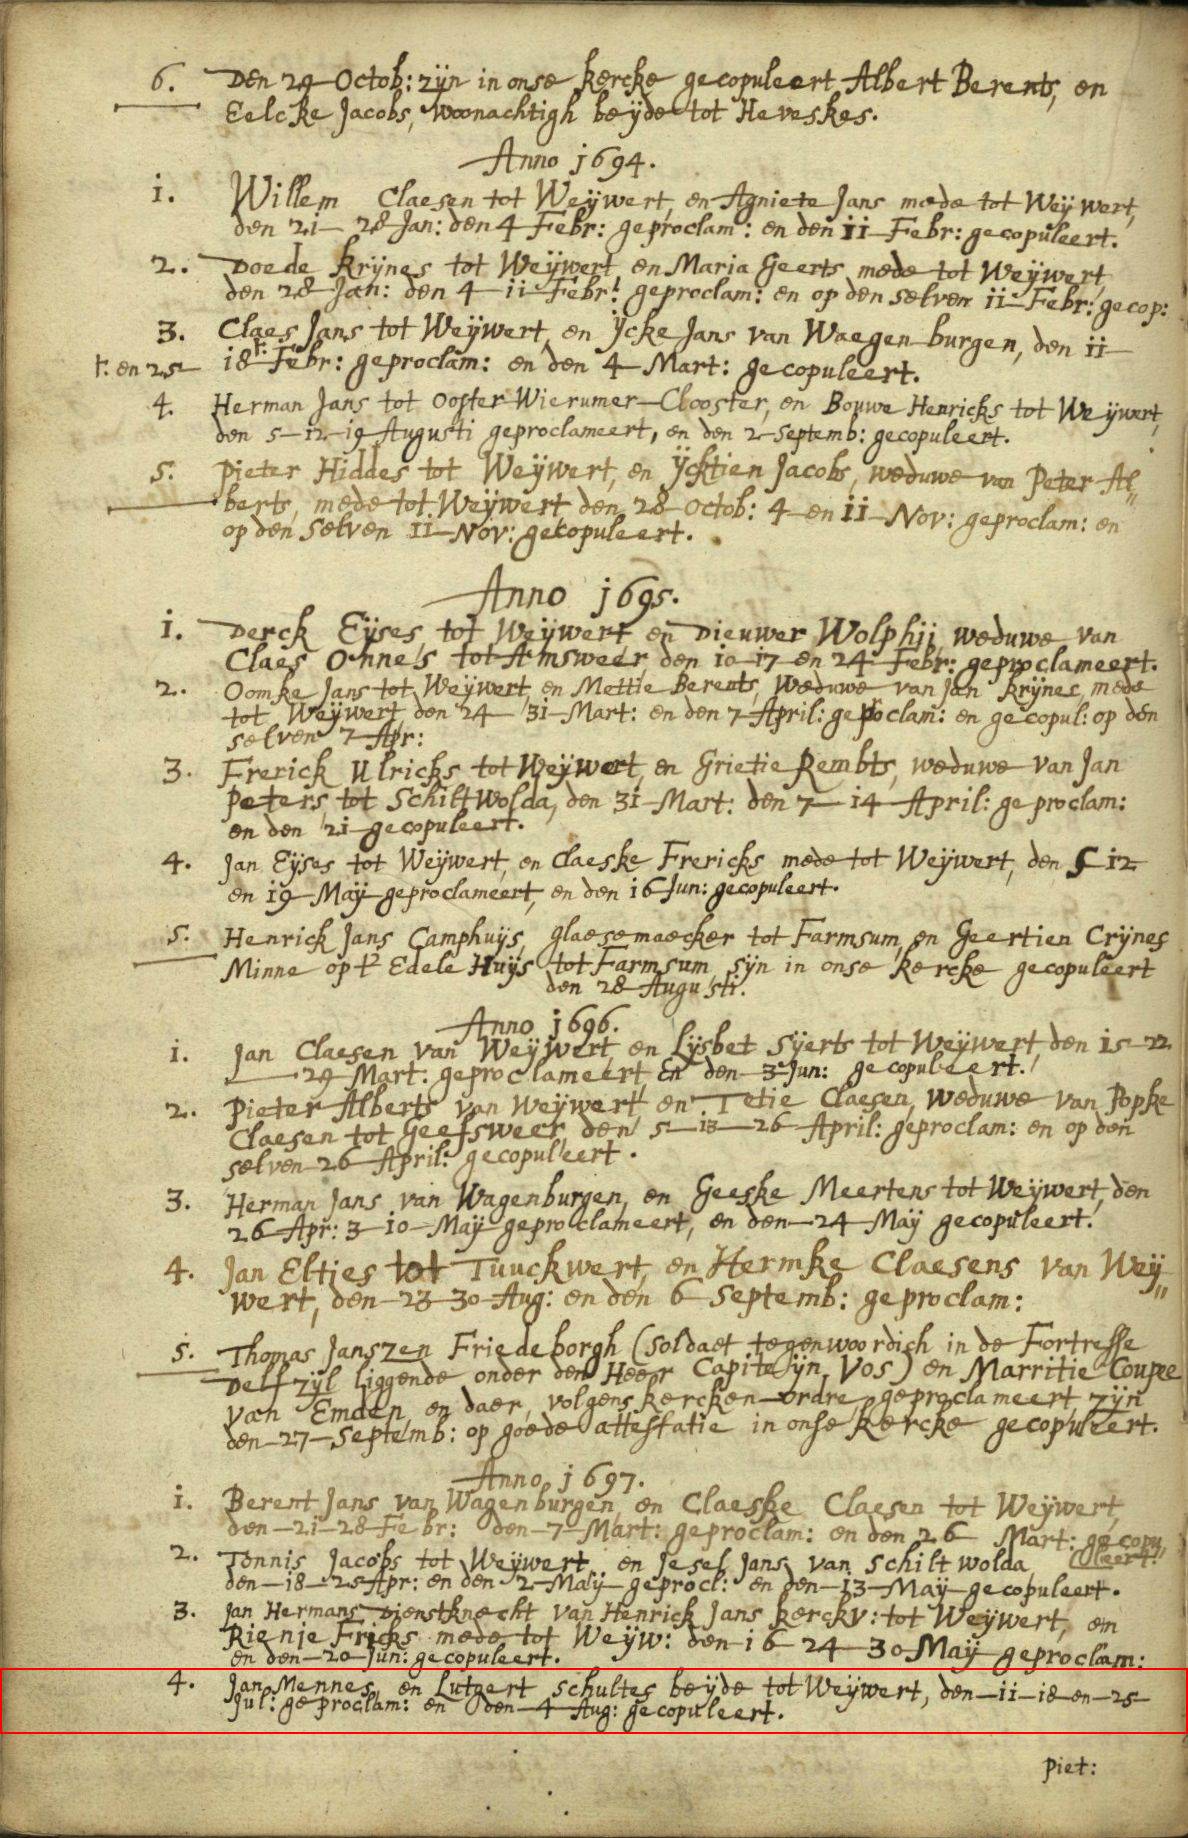 6. Den 29 Octob: zijn in onse kercke gecopuleert Albert Berents, en
Eelcke Jacobs, woonachtigh beijde tot Heveskes.
Anno 1694.
1. Willem Claesen tot Weijwert, en Agniete Jans mede tot Weijwert,
den 21 28 Jan: den 4 Febr: geproclam: en den 11 Febr: gecopuleert.
2. Doede Krijnes tot Weijwert, en Maria Geerts mede tot Weijwert,
den 28 Jan: den 4 11 Febr: geproclam: en op den selven 11 Febr: gecop:
3. Claes Jans tot Weijwert, en Ijcke Jans van Waegenburgen, den 11
18 †: Febr: geproclam: en den 4 Mart: gecopuleert.
†. en 25
4. Herman Jans tot Ooster Wierumer-Clooster, en Bouwe Henricks tot Weijwert,
den 5-12-19 Augusti geproclameert, en den 2 Septemb: gecopuleert.
5. Pieter Hiddes tot Weijwert, en Ijcktien Jacobs, weduwe van Peter Al„
berts, mede tot Weijwert den 28 Octob: 4 en 11 Nov: geproclam: en
op den selven 11 Nov: gecopuleert.
Anno 1695.
1. Derck Eijses tot Weijwert en Dieuwer Wolphij, weduwe van
Claes Onne's tot Amsweer, den 10-17 en 24 Febr: geproclameert.
2. Oomke Jans tot Weijwert, en Mettie Berents, Weduwe van Jan Krijnes, mede
tot Weijwert, den 24 31 Mart: en den 7 April: geproclam: en gecopul: op den
selven 7 Apr:
3. Frerick Ulricks tot Weijwert, en Grietie Rembts, weduwe van Jan
Peters, tot Schiltwolda, den 31 Mart: den 7 14 April: geproclam:
en den 21 gecopuleert.
4. Jan Eijses tot Weijwert, en Claeske Frericks mede tot Weijwert, den 5 12
en 19 Maij geproclameert, en den 16 Jun: gecopuleert.
5. Henrick Jans Camphuijs, glaesemaecker tot Farmsum, en Geertien Crijnes
Minne op t' Edele Huijs tot Farmsum, sijn in onse kercke gecopuleert
den 28 Augusti.
Anno 1696.
1. Jan Claesen van Weijwert, en Lijsbet Sijerts tot Weijwert, den 15-22
29 Mart: geproclameert, En den 3 Jun: gecopuleert.
2. Pieter Alberts van Weijwert en Tetie Claesen, Weduwe van Popke
Claesen tot Geefsweer, den 5 13 26 April: geproclam: en op den
selven 26 April: gecopuleert.
3. Herman Jans van Wagenburgen, en Geeske Meertens tot Weijwert, den
26 Apr: 3 10 Maij geproclameert, en den 24 Maij gecopuleert.
4. Jan Eltjes tot Tuuckwert, en Hermke Claesens van Weij„
wert, den 23 30 Aug: en den 6 Septemb: geproclam:
5. Thomas Janszen Friedeborgh (soldaet tegenwoordich in de Fortresse
Delfzijl liggende onder den Heer Capiteijn Vos) en Marritie Coupe
van Emden, en daer, volgens kercken-ordre, geproclameert, zijn
den 27 Septemb: op goede attestatie in onse kercke gecopuleert.
Anno 1697.
1. Berent Jans van Wagenburgen, en Claeske Claesen tot Weijwert,
den 21-28 Febr: den 7 Mart: geproclam: en den 26 Mart: gecopu„
leert.
2. Tonnis Jacobs tot Weijwert, en Jesel Jans van Schiltwolda,
den 18 25 Apr: en den 2 Maij geprocl: en den 13 Maij gecopuleert.
3. Jan Hermans Dienstknecht van Henrick Jans kerckv: tot Weijwert, en
Rienje Fricks mede tot Weijw: den 16 24 30 Maij geproclam:
en den 20 Jun: gecopuleert.
4. Jan Mennes, en Lutgert Schultes beijde tot Weijwert, den 11-18 en 25
Jul: geproclam: en den 4 Aug: gecopuleert.
Piet: